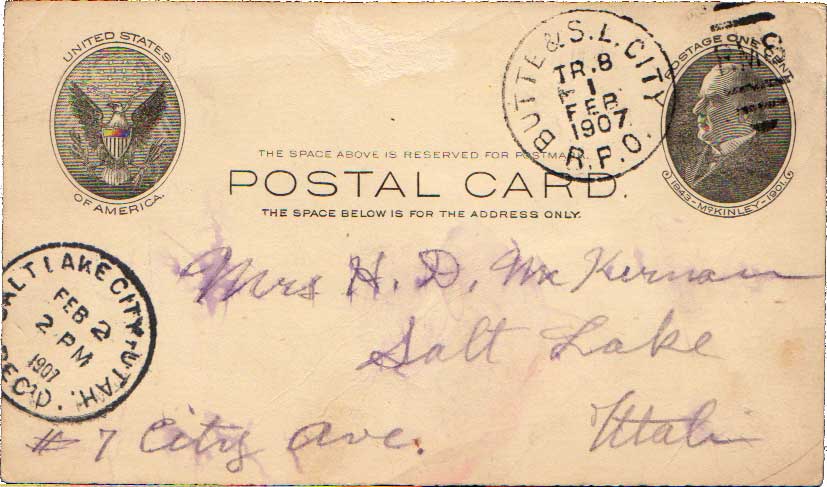 UNITED STATES
OF AMERICA.
BUTTE & S.L. CITY
TR.8
1
FEB
1907
R.P.O.
POSTAGE ONE CENT
1843-McKINLEY-1901
THE SPACE ABOVE IS RESERVED FOR POSTMARK.
POSTAL CARD.
THE SPACE BELOW IS FOR THE ADDRESS ONLY.
SALT LAKE CITY-UTAH.
FEB 2
2 PM
1907
REC'D.
Mrs H. D. McKernan
Salt Lake
# 7 City Ave. Utah